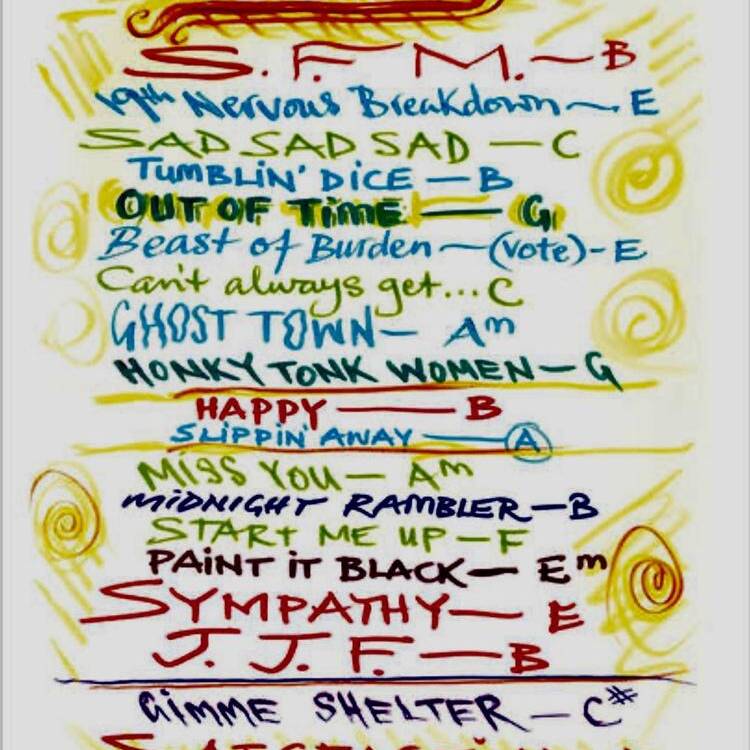 S.F.M. — B
19th Nervous Breakdown — E
SAD SAD SAD — C
TUMBLIN' DiCE — B
OUT OF TiME — G
Beast of Burden — (vote) - E
Can't always get... C
GHOST TOWN — Am
HONKY TONK WOMEN — G
HAPPY — B
SLIPPIN' AWAY — A
MISS YOU — Am
MiDNIGHT RAMBLER — B
START ME UP — F
PAiNT iT BLACK — Em
SYMPATHY — E
J.J.F. — B
GiMME SHELTER — C#